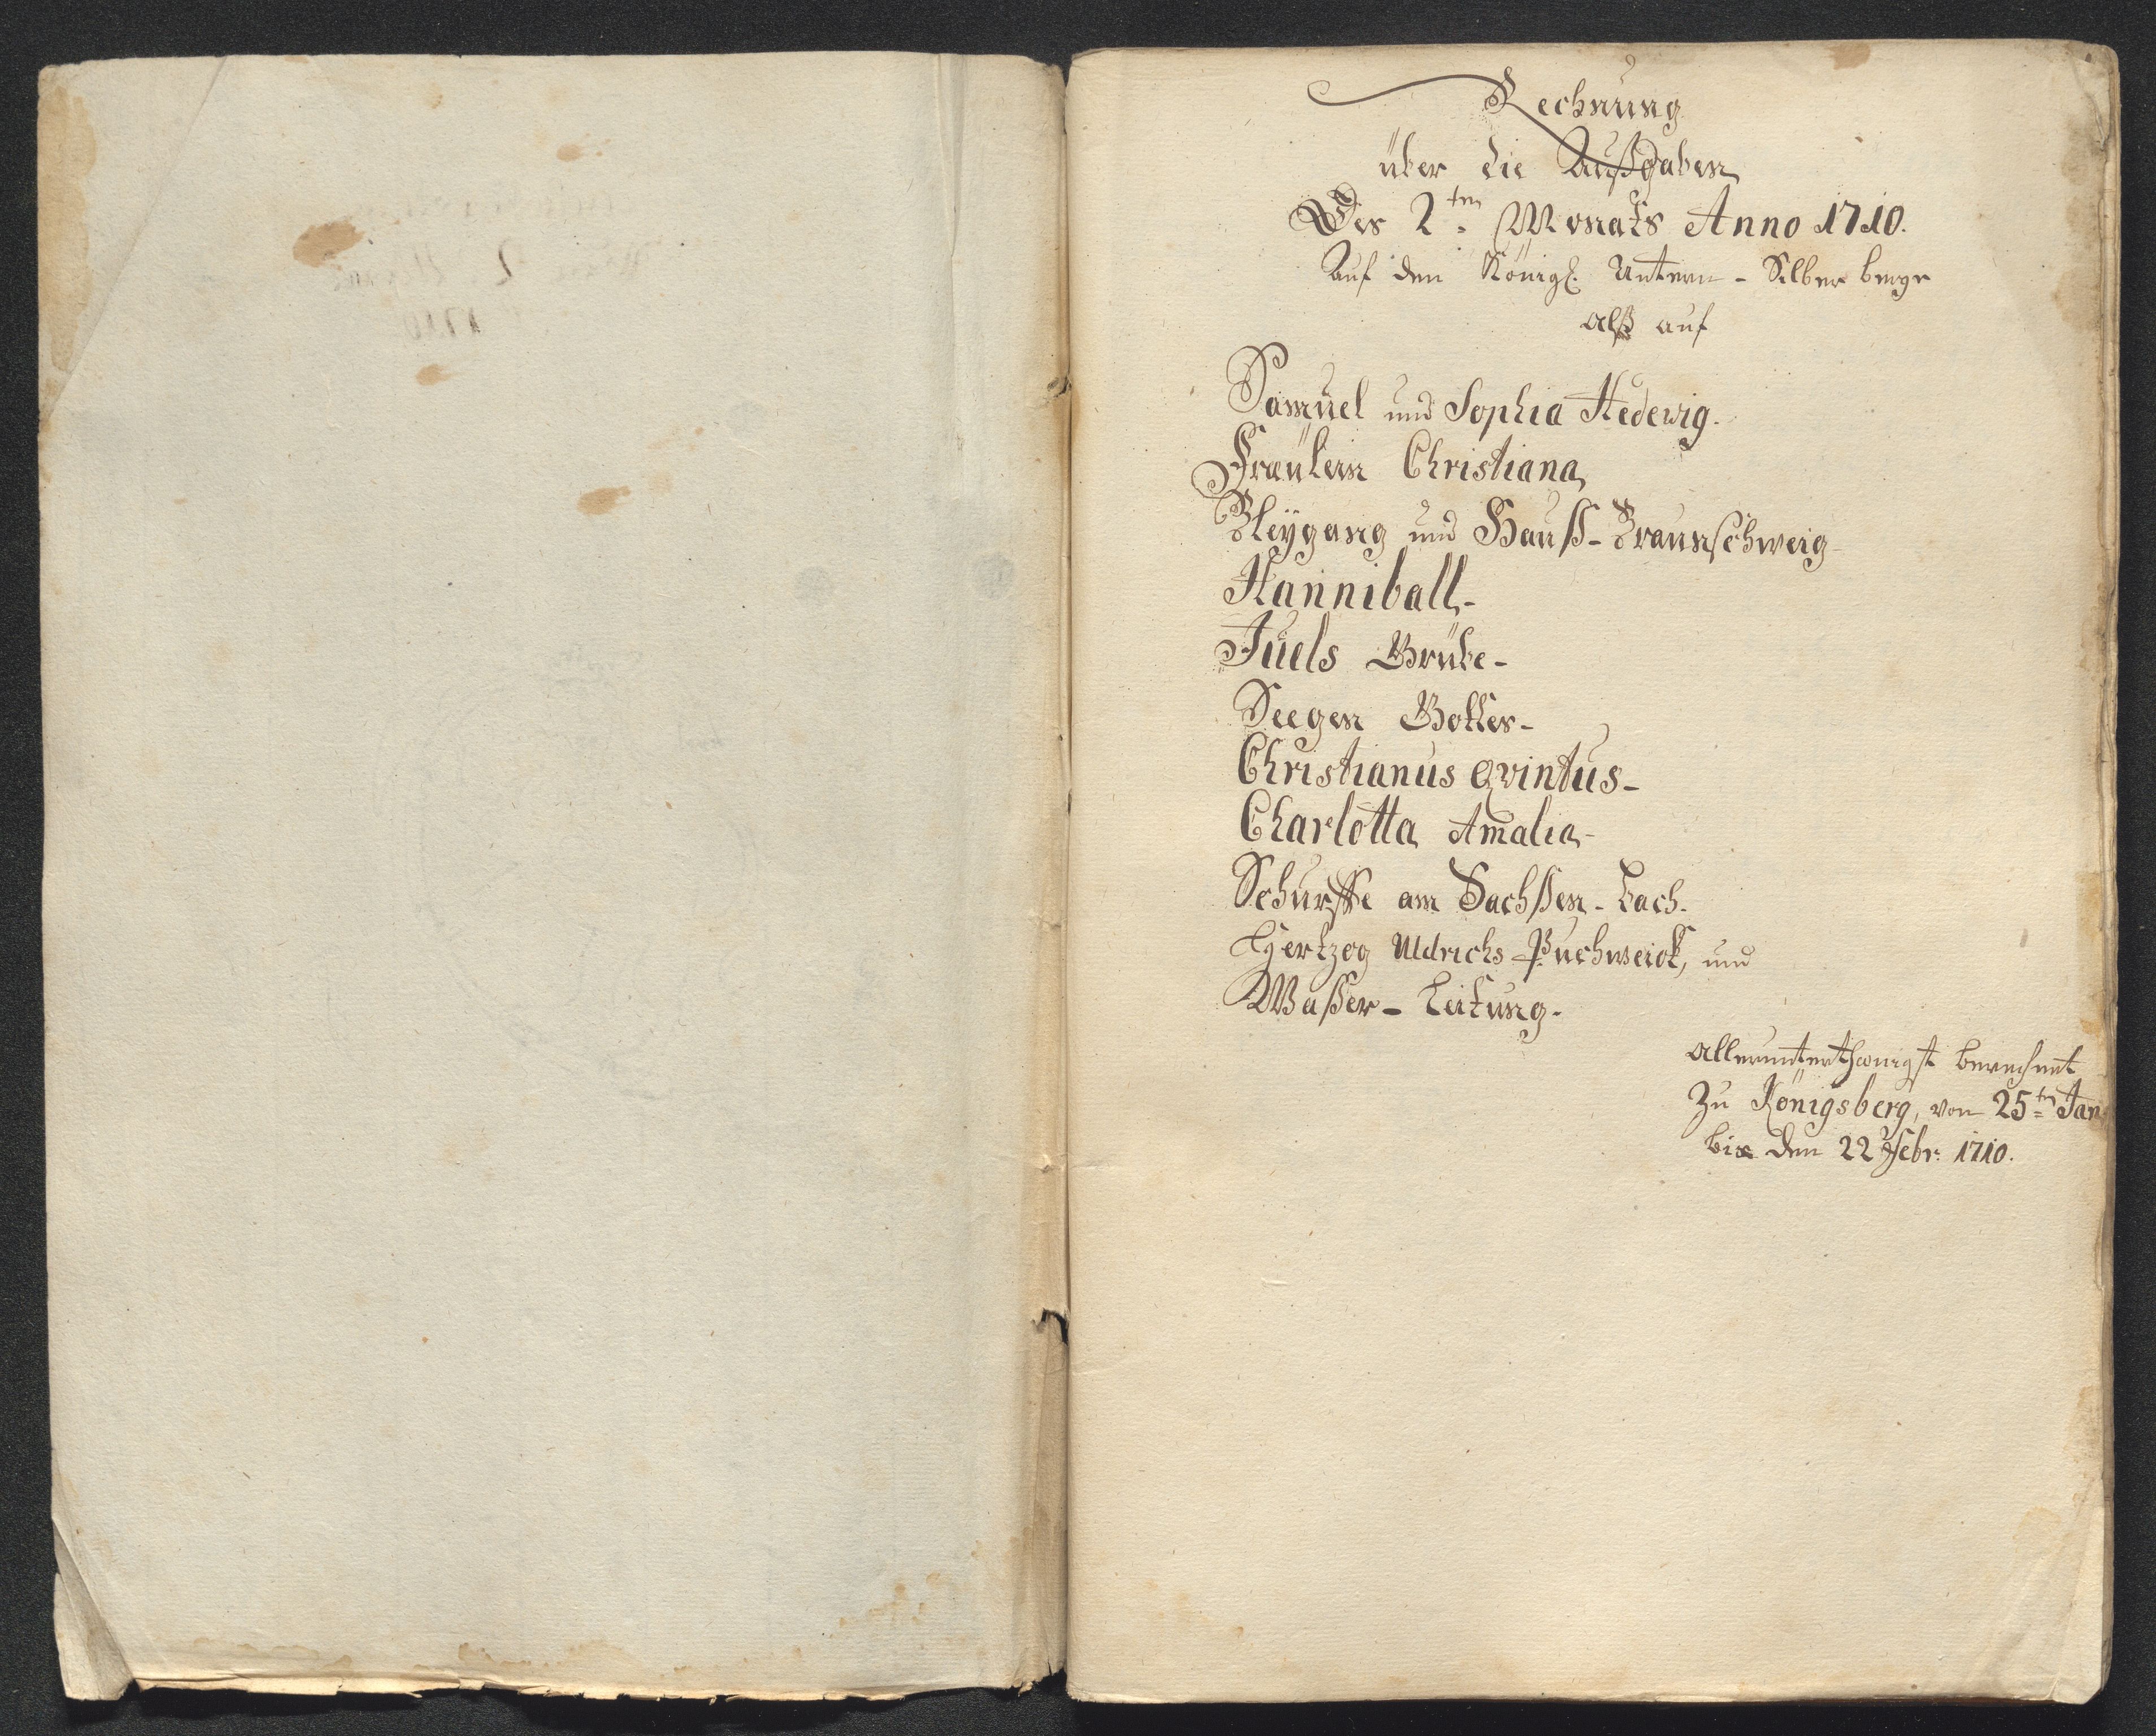 Rechnung
über die Außgaben
Des 2ten Monats Anno 1710.
Auf den Königl. Untern - Silber berge
alß auf
Samuel und Sophia Hedewig.
Fräulein Christiana,
Bleygang und Hauß - Braunschweig -
Hanniball -
Juels Grube -
Seegen Gottes -
Christianus Qvintus -
Charlotta Amalia -
Schurffe am Sachßen - bach.
Hertzog Uldrichs Puchwerck, und
Waßer - Leitung.
Allerunterthänigst berechnet
Zu Königsberg, von 25ten Jan
bis den 22 Febr: 1710.